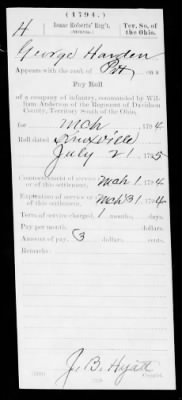 (1794.)
H Isaac Roberts' Reg't. Ter. So. of the Ohio.
(Militia.)
George Harden
Appears with the rank of Pvt on a
Pay Roll
of a company of infantry, commanded by William Anderson of the Regiment of Davidson County, Territory South of the Ohio,
for Mch, 1794
Roll dated Knoxville
July 21, 1795
Commencement of service or of this settlement, Mch 1, 1794
Expiration of service or of this settlement, Mch 31, 1794
Term of service charged, 1 months, days.
Pay per month, dollars, cents.
Amount of pay, 3 dollars, cents.
Remarks:
J. B. Hyatt
Copyist.